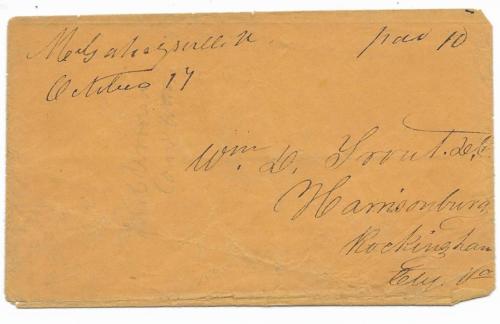 McGaheysville
October 17
paid 10
Wm. D. Trout
Harrisonburg
Rockingham
Cty. Va